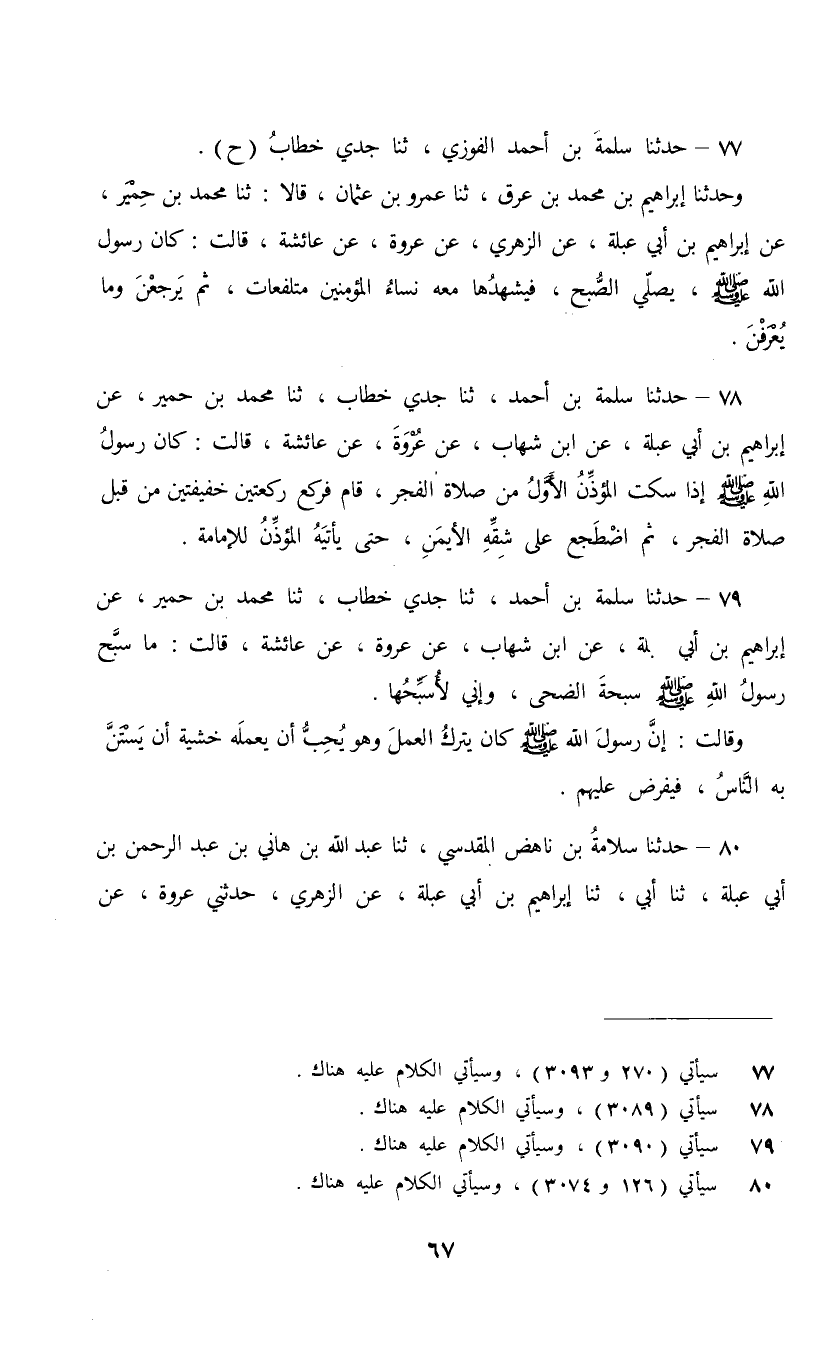 ٧٧ – حدثنا سلمةَ بن أحمد الفوزي ، ثنا جدي خطابُ (ح) .
وحدثنا إبراهيم بن محمد بن عرق ، ثنا عمرو بن عثمان ، قالا : ثنا محمد بن حِمْيَر ،
عن إبراهيم بن أبي عبلة ، عن الزهري ، عن عروة ، عن عائشة ، قالت : كان رسول
الله ﷺ ، يصلّي الصُّبح ، فيشهدُها معه نساءُ المؤمنين متلفعات ، ثم يَرجعْنَ وما
يُعْرَفْنَ .
٧٨ – حدثنا سلمة بن أحمد ، ثنا جدي خطاب ، ثنا محمد بن حمير ، عن
إبراهيم بن أبي عبلة ، عن ابن شهاب ، عن عُرْوَةَ ، عن عائشة ، قالت : كان رسولُ
اللهِ ﷺ إذا سكت المؤذِّنُ الأَوَّلُ من صلاة الفجر ، قام فركع ركعتين خفيفتين من قبل
صلاة الفجر ، ثم اضْطَجع على شِقِّهِ الأيمَنِ ، حتى يأتيَهُ المؤذِّنُ للإمامة .
٧٩ – حدثنا سلمة بن أحمد ، ثنا جدي خطاب ، ثنا محمد بن حمير ، عن
إبراهيم بن أبي بلة ، عن ابن شهاب ، عن عروة ، عن عائشة ، قالت : ما سبَّح
رسولُ اللهِ ﷺ سبحةَ الضحى ، وإني لأُسَبِّحُها .
وقالت : إنَّ رسولَ الله ﷺ كان يتركُ العملَ وهو يُحِبُّ أن يعملَه خشية أن يَسْتَنَّ
به النَّاسُ ، فيفرض عليهم .
٨٠ – حدثنا سلامةُ بن ناهض المقدسي ، ثنا عبد الله بن هاني بن عبد الرحمن بن
أبي عبلة ، ثنا أبي ، ثنا إبراهيم بن أبي عبلة ، عن الزهري ، حدثني عروة ، عن
٧٧ سيأتي (٢٧٠ و ٣٠٩٣) ، وسيأتي الكلام عليه هناك .
٧٨ سيأتي (٣٠٨٩) ، وسيأتي الكلام عليه هناك .
٧٩ سيأتي (٣٠٩٠) ، وسيأتي الكلام عليه هناك .
٨٠ سيأتي (١٢٦ و ٣٠٧٤) ، وسيأتي الكلام عليه هناك .
٦٧